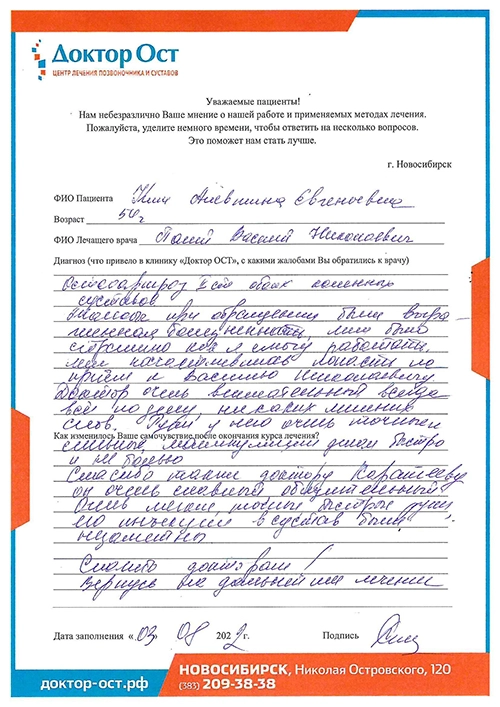 Доктор Ост
ЦЕНТР ЛЕЧЕНИЯ ПОЗВОНОЧНИКА И СУСТАВОВ
Уважаемые пациенты!
Нам небезразлично Ваше мнение о нашей работе и применяемых методах лечения.
Пожалуйста, уделите немного времени, чтобы ответить на несколько вопросов.
Это поможет нам стать лучше.
г. Новосибирск
ФИО Пациента Алевтина Евгеньевна
Возраст 50г
ФИО Лечащего врача Василий Николаевич
Диагноз (что привело в клинику «Доктор ОСТ», с какими жалобами Вы обратились к врачу)
Остеоартроз обоих коленных
суставов
при обращении были выра
женная болезненность, мне было
страшно как я смогу работать.
попасть на
приём к Василию Николаевичу
Доктор очень внимательный всегда
всё по делу, ни каких лишних
слов. Руки у него очень точные
Как изменилось Ваше самочувствие после окончания курса лечения?
манипуляции делал быстро
и не больно
Спасибо также доктору Каратееву
он очень славный обходительный
Очень мягкие, точные быстрые руки,
его инъекции в сустав были
незаметно.
Спасибо докторам!
Вернусь на дальнейшее лечение
Дата заполнения «03 08 2022 г.
Подпись
доктор-ост.рф
НОВОСИБИРСК, Николая Островского, 120
(383) 209-38-38